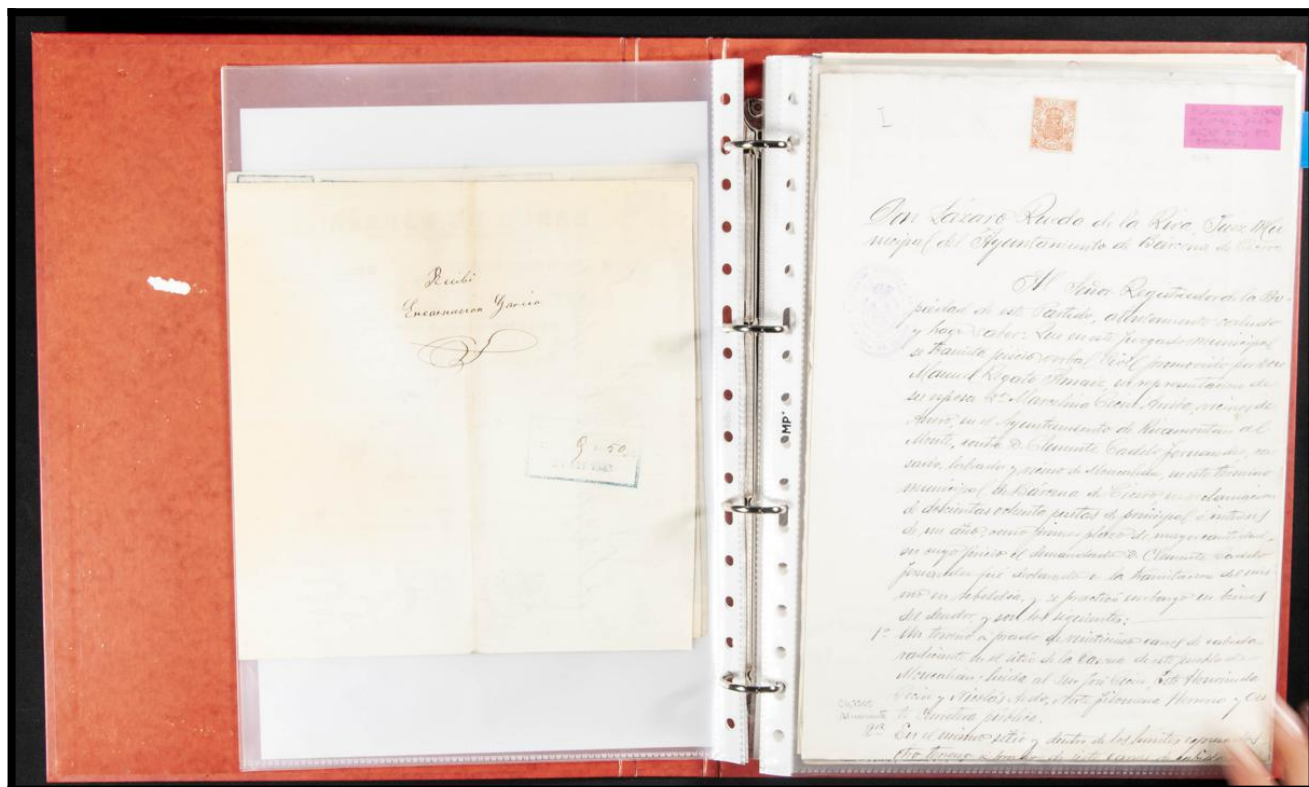 Recibí
Encarnacion Garcia
9 50
MP
I
Don Lázaro Ruedo de la Riva, Juez Mu
nicipal del Ayuntamiento de Bárcena de Cicero
Al Señor Registrador de la Pro-
piedad de este Partido, atentamente saludo
y hago saber: Que en este juzgado municipal
se tramita juicio verbal civil promovido por Don
Manuel Regato en representacion de
su esposa Dª Marcelina vecinos de
Anero, en el Ayuntamiento de Rivamontan al
Monte, contra D. Clemente Fernandez, ca
sado, labrador y vecino de Moncalian, en este término
municipal de Bárcena de Cicero en reclamacion
de doscientas ochenta pesetas de principal é intereses
de un año, como primer plazo de mayor cantidad,
en cuyo juicio el demandado D. Clemente
Fernandez fué declarado a la tramitacion del mis
mo en rebeldia, y se practicó embargo en bienes
del deudor, y son los siguientes:
1º Un terreno a prado de veinticinco carros de cabida
radicante en el sitio de la de este pueblo de
Moncalian: linda al Sur José Este
y Nicolás Norte Filomena Moreno y Oes
te pública.
2º En el mismo sitio y dentro de los limites expresados
otro terreno a prado de siete carros de cabida